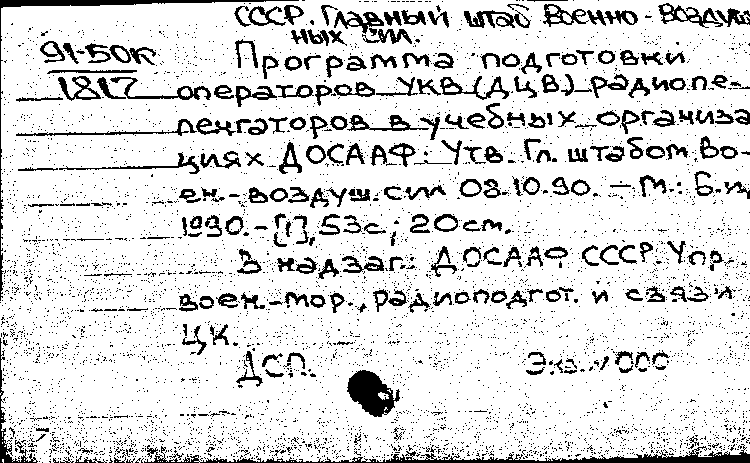 СССР. Главный штаб Военно-Воздуш
ных сил.
91-50к
1817
Программа подготовки
операторов УКВ (ДЦВ) радиопе-
ленгаторов в учебных организа
циях ДОСААФ: Утв. Гл. штабом Во-
ен.-воздуш. сил 08.10.90. – М.: Б.и,
1990. – [1], 53с; 20см.
В надзаг.: ДОСААФ СССР. Упр.
воен.-мор., радиоподгот. и связи
ЦК.
ДСП.
Экз. 000